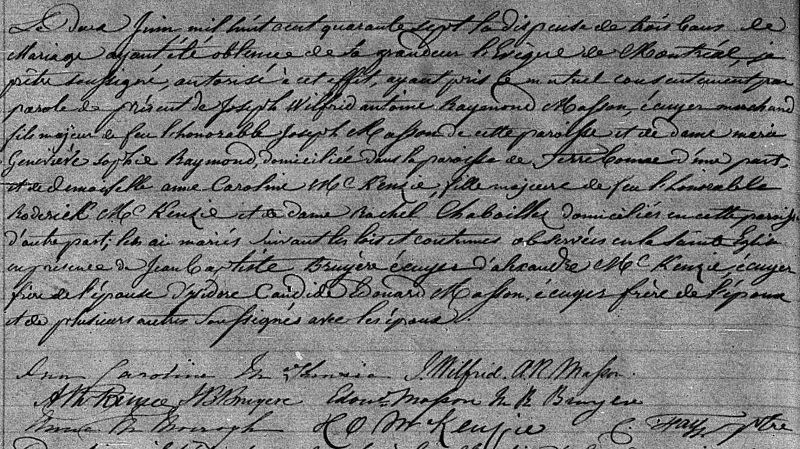 Le deux Juin mil huit cent quarante sept la dispense de trois bans de
Mariage ayant été obtenue de sa grandeur l'Evêque de Montréal, je
prêtre soussigné, autorisé à cet effet, ayant pris le mutuel consentement par
parole de présent de Joseph Wilfrid antoine Raymond Masson, écuyer marchand
fils majeur de feu l'honorable Joseph Masson de cette paroisse et de dame marie
Geneviève Sophie Raymond, domiciliée dans la paroisse de Terrebonne d'une part,
et de demoiselle anne Caroline McKenzie fille majeure de feu l'honorable
Roderick McKenzie et de dame Rachel Chaboillez domiciliés en cette paroisse
d'autre part; les ai mariés suivant les lois et coutumes observées en la Sainte Eglise
en présence de Jean Baptiste Bruyère écuyer d'alexandre McKenzie, écuyer
frère de l'épouse d'isidore Candide Edouard Masson, écuyer frère de l'époux
et de plusieurs autres Soussignés avec les époux.
Ann Caroline McKenzie J. Wilfrid. A.R. Masson.
A McKenzie JB Bruyere Edou. Masson M R Bruyere
McKenzie C. Fay ptre